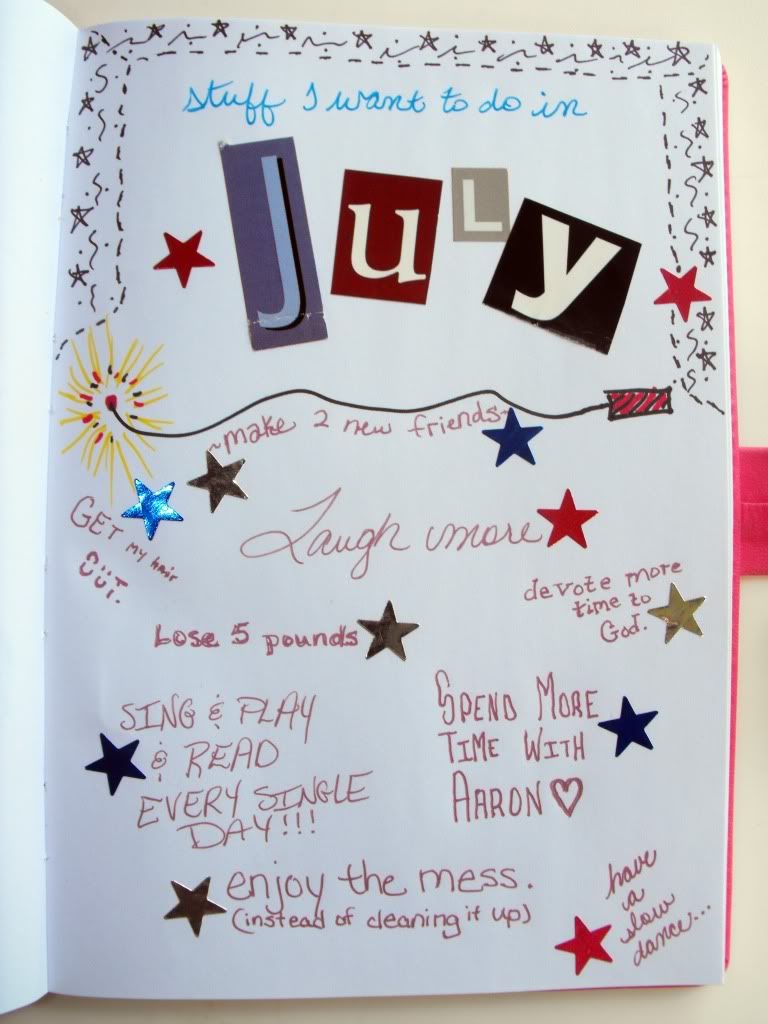 stuff I want to do in
JULy
~make 2 new friends~
GET my hair
CUT.
Laugh more
devote more
time to
God.
Lose 5 pounds
SING & PLAY
& READ
EVERY SINGLE
DAY!!!
SPEND MORE
TIME WITH
AARON ♡
enjoy the mess.
(instead of cleaning it up)
have
a
slow
dance...